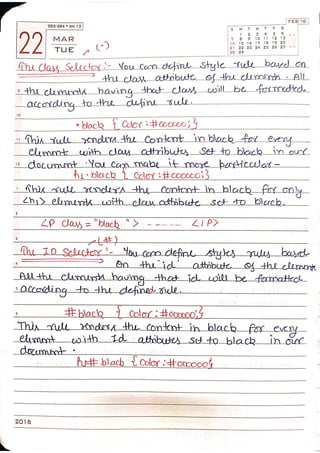 082-284 • WK 13
FEB 16
S M T W T F S
1 2 3 4 5 6
7 8 9 10 11 12 13
14 15 16 17 18 19 20
21 22 23 24 25 26 27
28 29
22 MAR
TUE
(•)
The Class Selector :- You can define Style rule based on
the class attribute of the elements. All
the elements having that class will be formatted
according to the define rule.
•black { Color : #000000; }
This rule renders the content in black for every
element with class attributes set to black in our
document. You can make it more particular -
h1 • black { Color : #000000; }
This rule renders the content in black for only
<h1> elements with class attribute set to black.
<P class = "black"> ----- </P>
(#)
The ID Selector :- You can define styles rules based
On the "id" attribute of the elements
All the elements having that id will be formatted
according to the defined rule.
#black { Color : #000000; }
This rule renders the content in black for every
element with Id attributes set to black in our
document.
h1# black { Color : #000000; }
2016